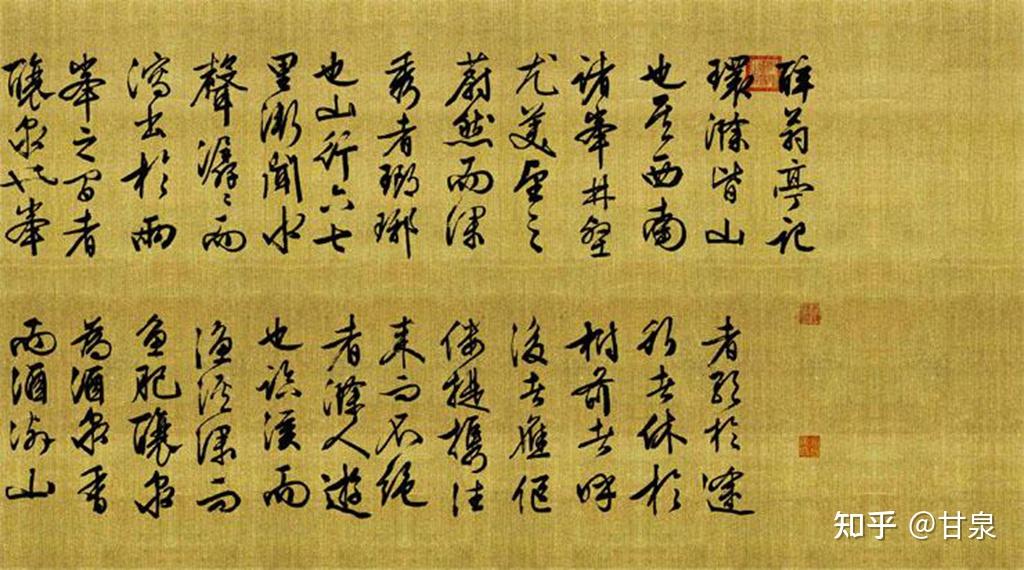 醉翁亭記
環滁皆山
也其西南
諸峯林壑
尤美望之
蔚然而深
秀者瑯琊
也山行六七
里漸聞水
聲潺〻而
瀉出於兩
峯之間者
釀泉也峯
者歌於途
行者休於
樹前者呼
後者應傴
僂提攜往
來而不絕
者滁人遊
也臨溪而
漁溪深而
魚肥釀泉
為酒泉香
而酒洌山
知乎 @甘泉